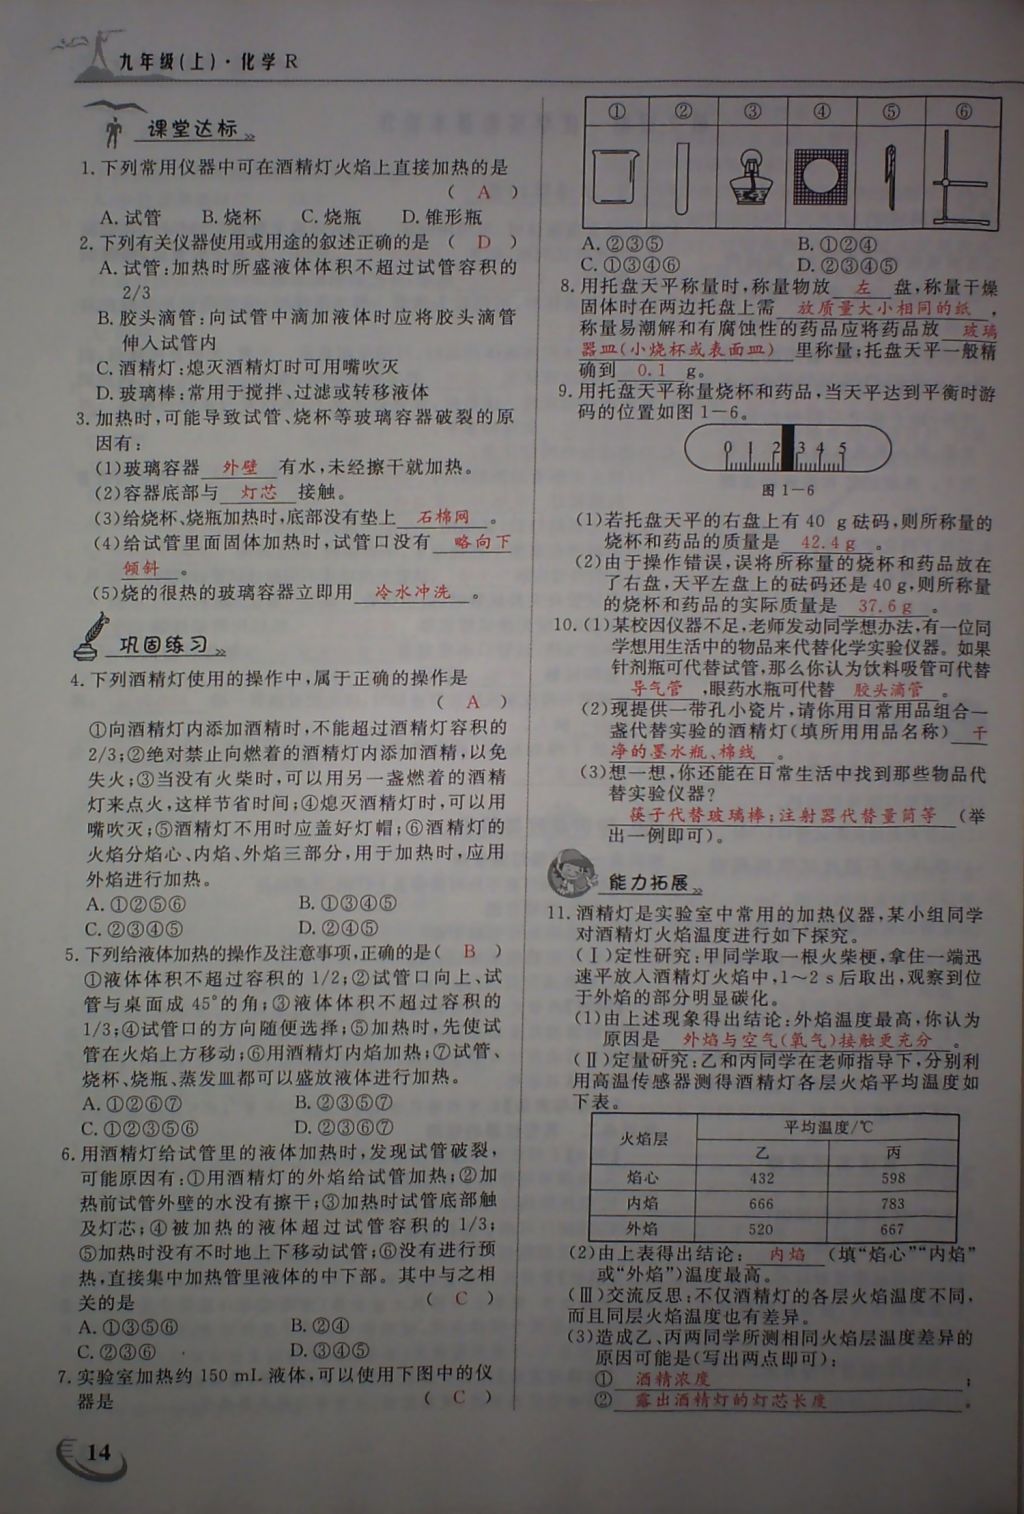 九年级(上)·化学 R
课堂达标
1. 下列常用仪器中可在酒精灯火焰上直接加热的是
( A )
A. 试管 B. 烧杯 C. 烧瓶 D. 锥形瓶
2. 下列有关仪器使用或用途的叙述正确的是 ( D )
A. 试管:加热时所盛液体体积不超过试管容积的
2/3
B. 胶头滴管:向试管中滴加液体时应将胶头滴管
伸入试管内
C. 酒精灯:熄灭酒精灯时可用嘴吹灭
D. 玻璃棒:常用于搅拌、过滤或转移液体
3. 加热时,可能导致试管、烧杯等玻璃容器破裂的原
因有:
(1)玻璃容器 外壁 有水,未经擦干就加热。
(2)容器底部与 灯芯 接触。
(3)给烧杯、烧瓶加热时,底部没有垫上 石棉网 。
(4)给试管里面固体加热时,试管口没有 略向下
倾斜 。
(5)烧的很热的玻璃容器立即用 冷水冲洗 。
巩固练习
4. 下列酒精灯使用的操作中,属于正确的操作是
( A )
①向酒精灯内添加酒精时,不能超过酒精灯容积的
2/3;②绝对禁止向燃着的酒精灯内添加酒精,以免
失火;③当没有火柴时,可以用另一盏燃着的酒精
灯来点火,这样节省时间;④熄灭酒精灯时,可以用
嘴吹灭;⑤酒精灯不用时应盖好灯帽;⑥酒精灯的
火焰分焰心、内焰、外焰三部分,用于加热时,应用
外焰进行加热。
A. ①②⑤⑥ B. ①③④⑤
C. ②③④⑤ D. ②④⑤
5. 下列给液体加热的操作及注意事项,正确的是( B )
①液体体积不超过容积的 1/2;②试管口向上、试
管与桌面成 45°的角;③液体体积不超过容积的
1/3;④试管口的方向随便选择;⑤加热时,先使试
管在火焰上方移动;⑥用酒精灯内焰加热;⑦试管、
烧杯、烧瓶、蒸发皿都可以盛放液体进行加热。
A. ①②⑥⑦ B. ②③⑤⑦
C. ①②③⑤⑥ D. ②③⑥⑦
6. 用酒精灯给试管里的液体加热时,发现试管破裂,
可能原因有:①用酒精灯的外焰给试管加热;②加
热前试管外壁的水没有擦干;③加热时试管底部触
及灯芯;④被加热的液体超过试管容积的 1/3;
⑤加热时没有不时地上下移动试管;⑥没有进行预
热,直接集中加热管里液体的中下部。其中与之相
关的是 ( C )
A. ①③⑤⑥ B. ②④
C. ②③⑥ D. ③④⑤
7. 实验室加热约 150 mL 液体,可以使用下图中的仪
器是 ( C )
14
① ② ③ ④ ⑤ ⑥
A. ②③⑤ B. ①②④
C. ①③④⑥ D. ②③④⑤
8. 用托盘天平称量时,称量物放 左 盘,称量干燥
固体时在两边托盘上需 放质量大小相同的纸 ,
称量易潮解和有腐蚀性的药品应将药品放 玻璃
器皿(小烧杯或表面皿) 里称量;托盘天平一般精
确到 0.1 g。
9. 用托盘天平称量烧杯和药品,当天平达到平衡时游
码的位置如图 1-6。
0 1 2 3 4 5
图 1-6
(1)若托盘天平的右盘上有 40 g 砝码,则所称量的
烧杯和药品的质量是 42.4 g 。
(2)由于操作错误,误将所称量的烧杯和药品放在
了右盘,天平左盘上的砝码还是 40 g,则所称量
的烧杯和药品的实际质量是 37.6 g 。
10. (1)某校因仪器不足,老师发动同学想办法,有一位同
学想用生活中的物品来代替化学实验仪器。如果
针剂瓶可代替试管,那么你认为饮料吸管可代替
导气管 ,眼药水瓶可代替 胶头滴管 。
(2)现提供一带孔小瓷片,请你用日常用品组合一
盏代替实验的酒精灯(填所用用品名称) 干
净的墨水瓶、棉线 。
(3)想一想,你还能在日常生活中找到那些物品代
替实验仪器?
筷子代替玻璃棒;注射器代替量筒等 (举
出一例即可)。
能力拓展
11. 酒精灯是实验室中常用的加热仪器,某小组同学
对酒精灯火焰温度进行如下探究。
(Ⅰ)定性研究:甲同学取一根火柴梗,拿住一端迅
速平放入酒精灯火焰中,1~2 s 后取出,观察到位
于外焰的部分明显碳化。
(1)由上述现象得出结论:外焰温度最高,你认为
原因是 外焰与空气(氧气)接触更充分 。
(Ⅱ)定量研究:乙和丙同学在老师指导下,分别利
用高温传感器测得酒精灯各层火焰平均温度如
下表。
火焰层 平均温度/℃
乙 丙
焰心 432 598
内焰 666 783
外焰 520 667
(2)由上表得出结论: 内焰 (填“焰心”“内焰”
或“外焰”)温度最高。
(Ⅲ)交流反思:不仅酒精灯的各层火焰温度不同,
而且同层火焰温度也有差异。
(3)造成乙、丙两同学所测相同火焰层温度差异的
原因可能是(写出两点即可):
① 酒精浓度 ;
② 露出酒精灯的灯芯长度 。